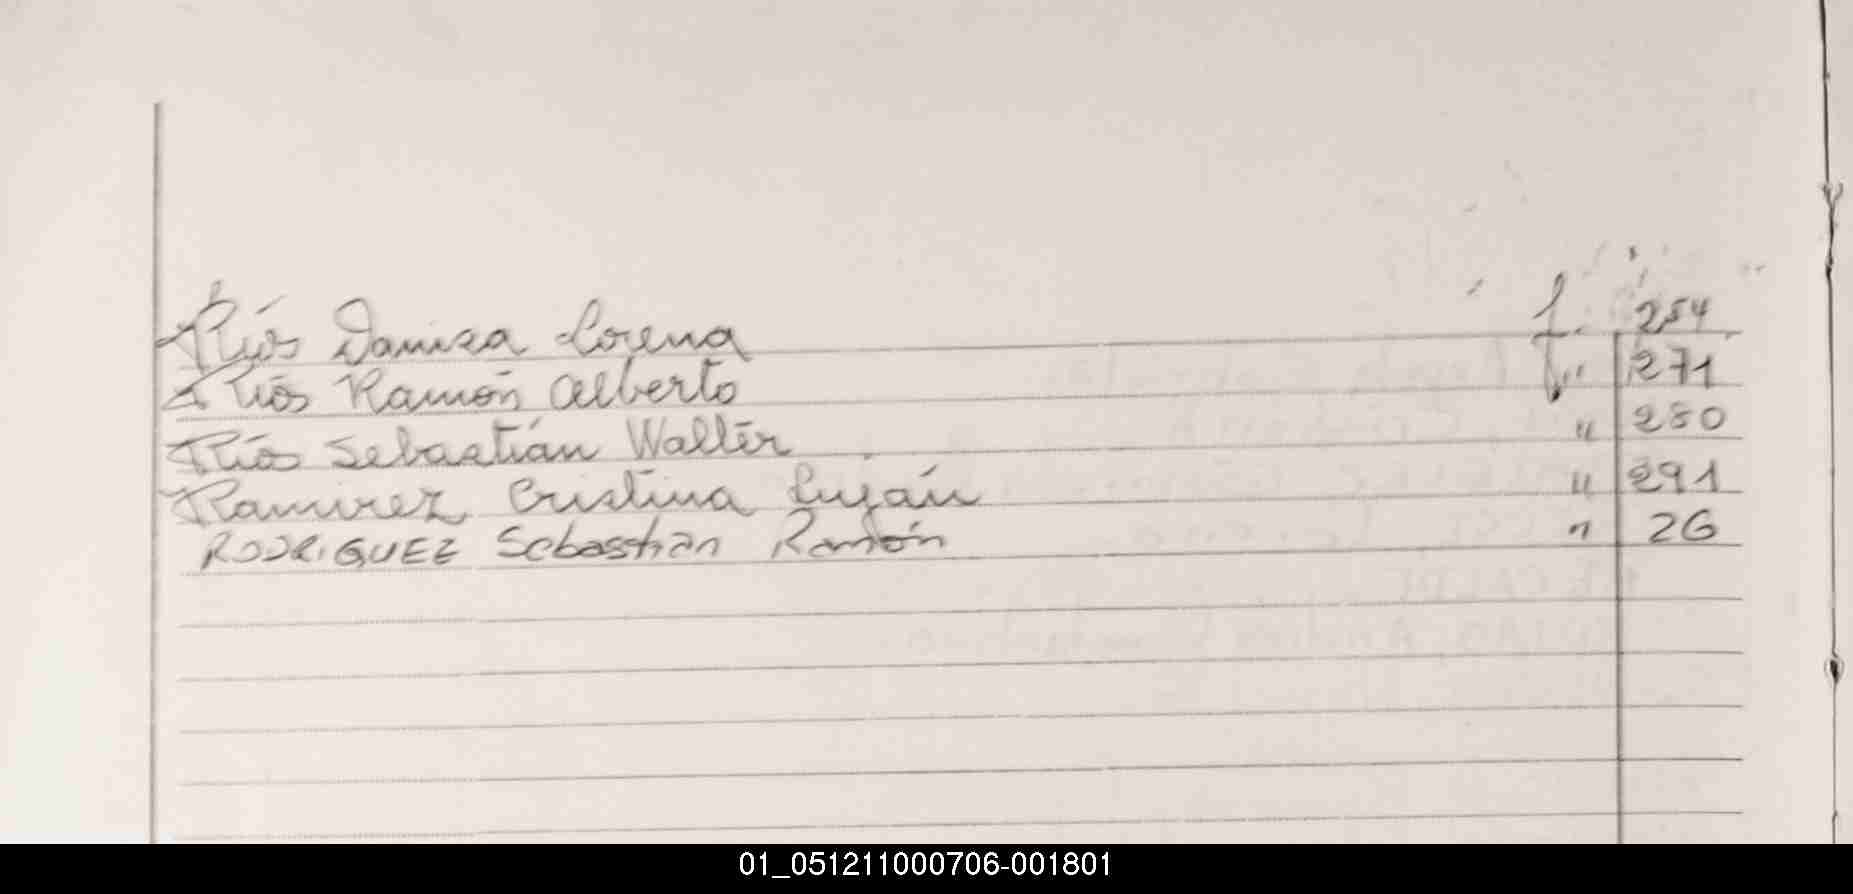 Ríos Daniza Lorena f. 254
Ríos Ramón Alberto f. " 271
Ríos Sebastián Walter " 280
Ramirez Cristina Luján " 291
RODRIGUEZ Sebastián Ramón " 26
01_051211000706-001801